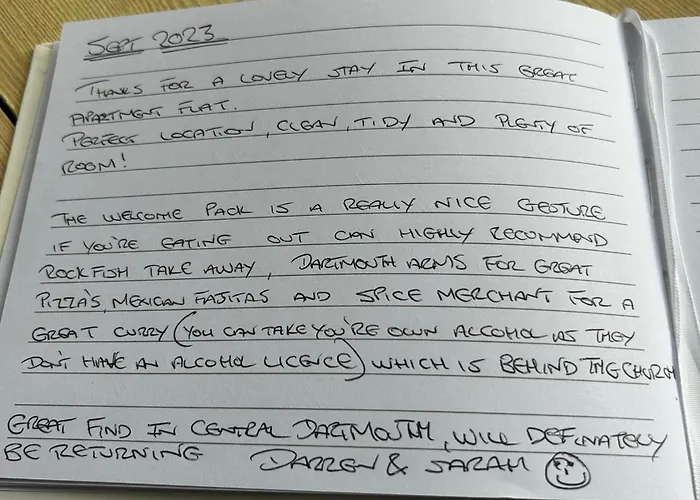 SEPT 2023
THANKS FOR A LOVELY STAY IN THIS GREAT
APARTMENT FLAT.
PERFECT LOCATION, CLEAN, TIDY AND PLENTY OF
ROOM!
THE WELCOME PACK IS A REALLY NICE GESTURE
IF YOU'RE EATING OUT CAN HIGHLY RECOMMEND
ROCKFISH TAKE AWAY, DARTMOUTH ARMS FOR GREAT
PIZZA'S, MEXICAN FAJITAS AND SPICE MERCHANT FOR A
GREAT CURRY (YOU CAN TAKE YOU'RE OWN ALCOHOL AS THEY
DON'T HAVE AN ALCOHOL LICENCE) WHICH IS BEHIND THE CHURCH
GREAT FIND IN CENTRAL DARTMOUTH, WILL DEFINATELY
BE RETURNING DARREN & SARAH